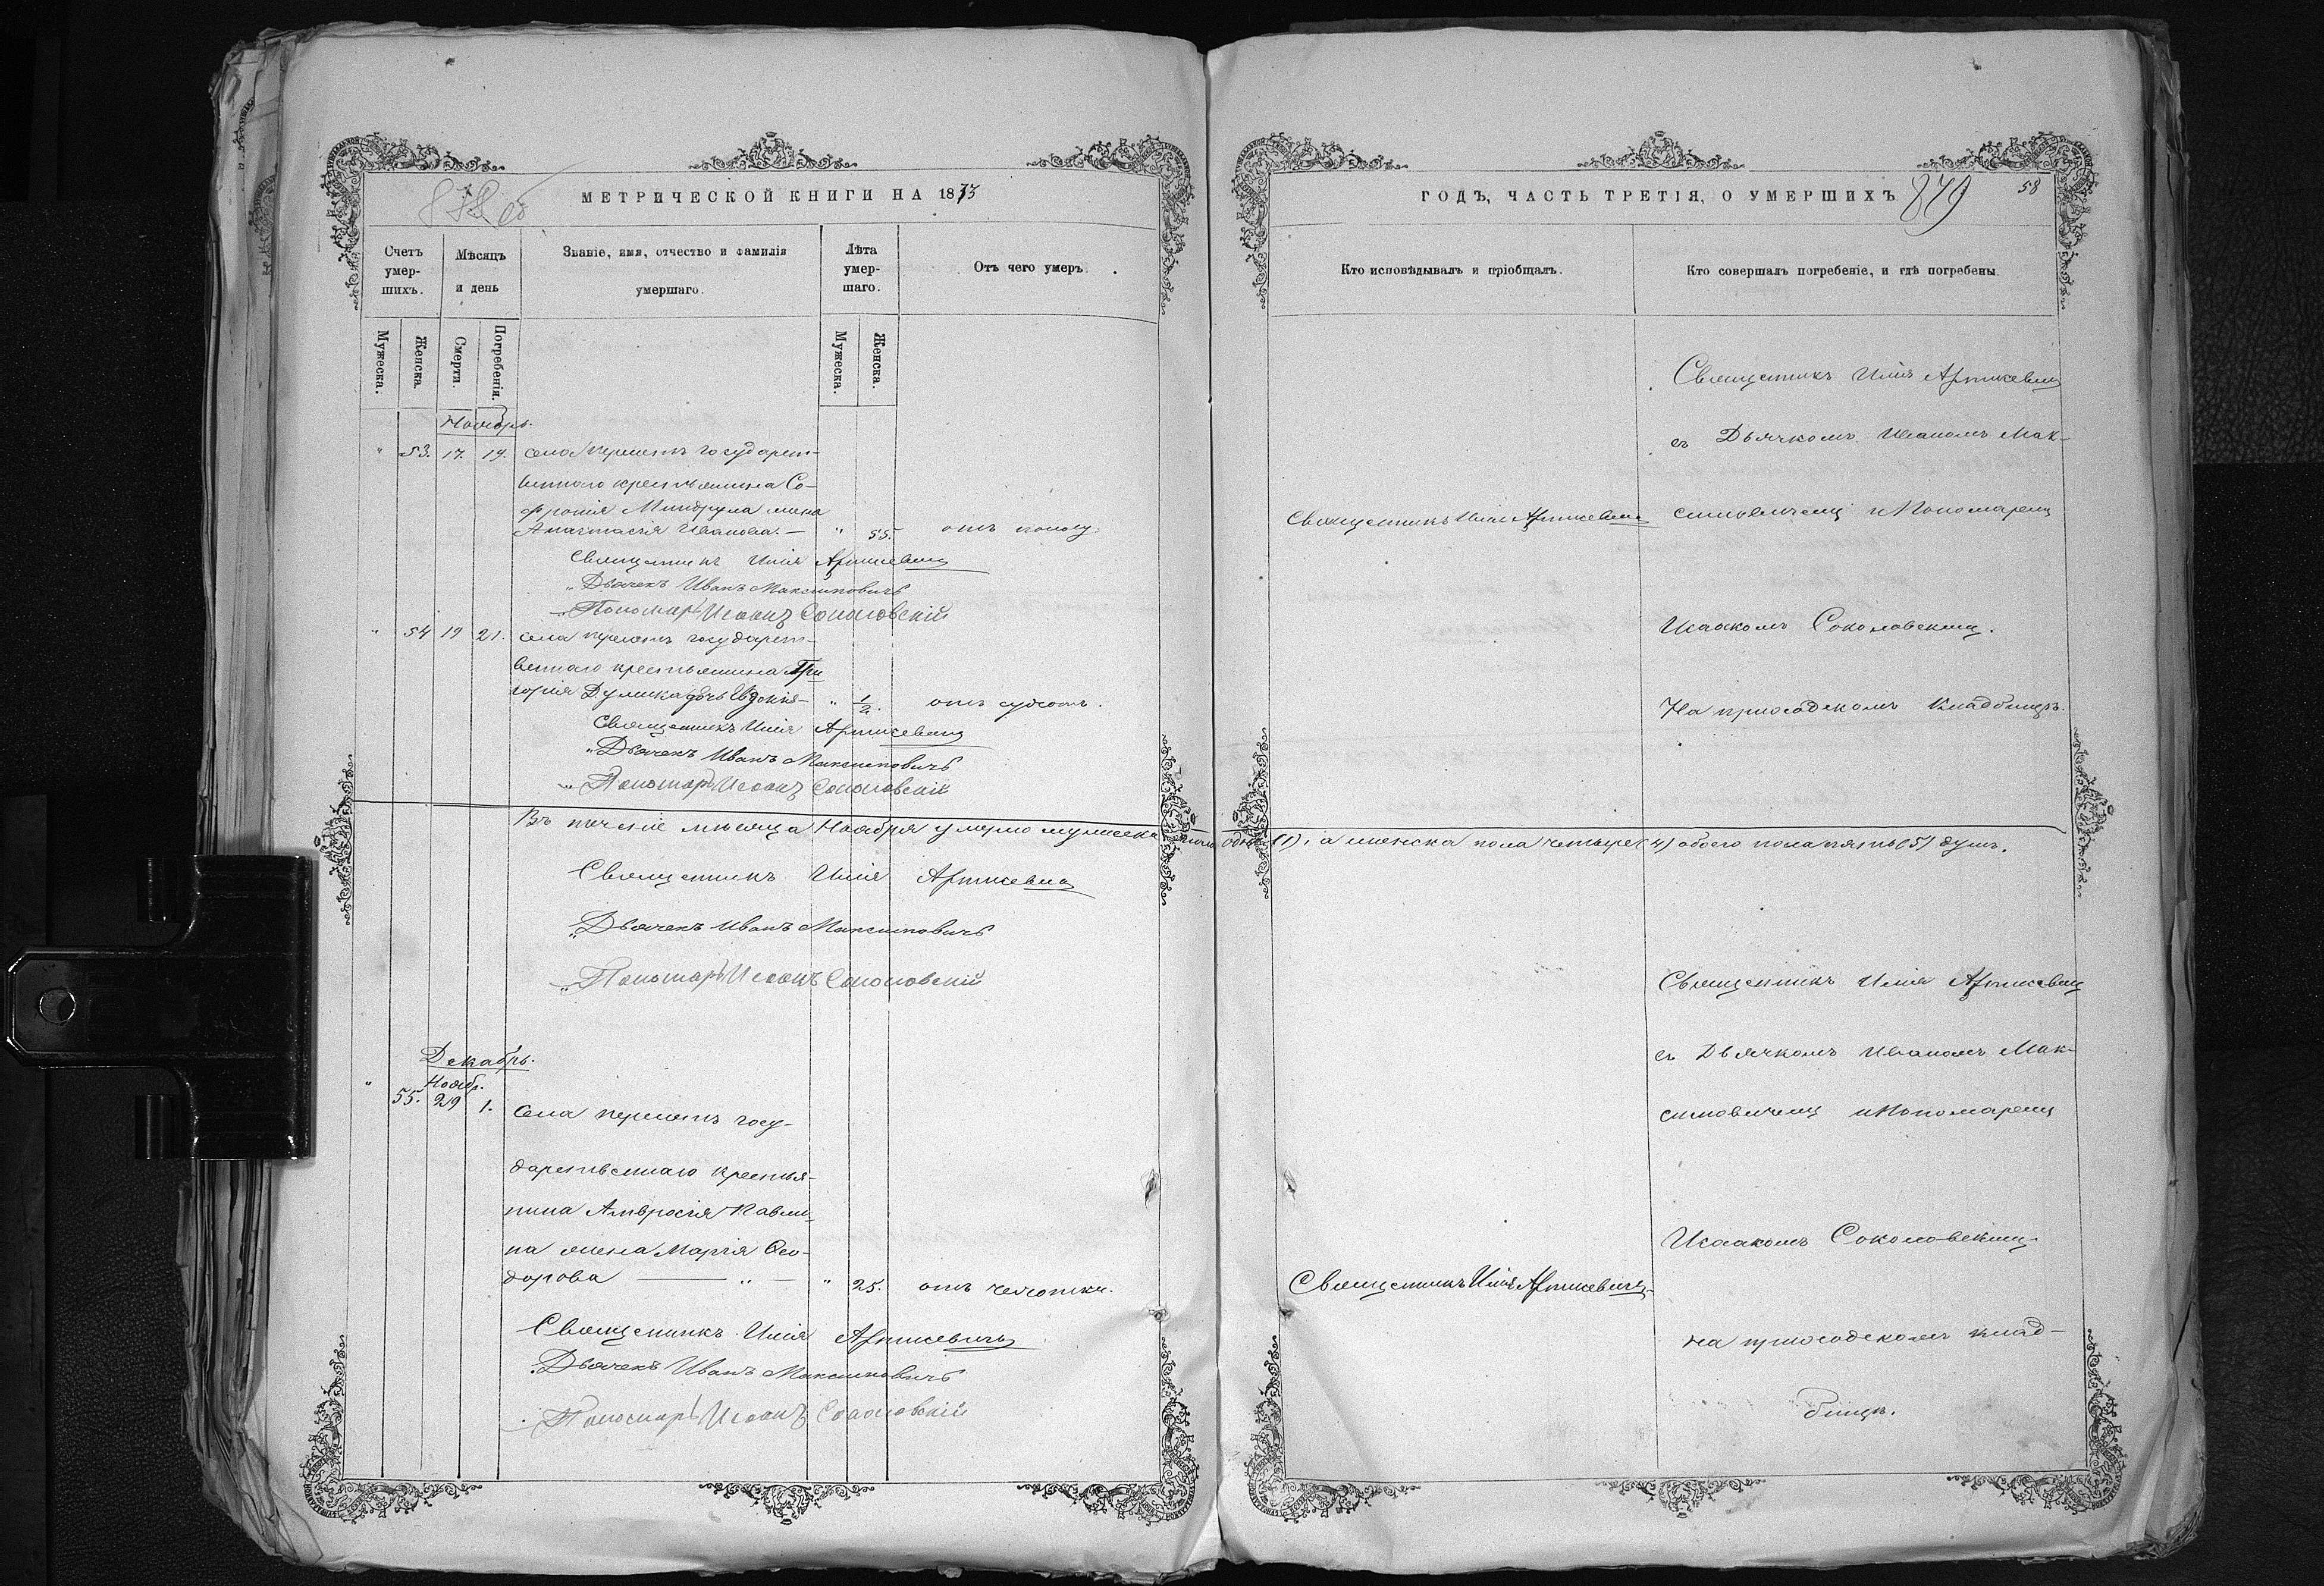 878 об
МЕТРИЧЕСКОЙ КНИГИ НА 1873
Счетъ умер-шихъ.
Мѣсяцъ и день
Званіе, имя, отчество и фамилія умершаго.
Лѣта умер-шаго.
Отъ чего умеръ.
Мужеска.
Женска.
Смерти.
Погребенія.
Мужеска.
Женска.
Ноябрь.
" 53. 17. 19. села государст-
веннаго крестьянина Со-
фронія Миндрула жена
Анастасія Иванова. — " 55. отъ
Священникъ Илія
" Дьячекъ Иванъ Максимовичъ
" Пономарь Исаакъ Соколовскій
" 54 19 21. села государст-
веннаго крестьянина Гри
горія дочь Евдокія — " 1/2. отъ
Священникъ Илія
" Дьячекъ Иванъ Максимовичъ
" Пономарь Исаакъ Соколовскій
Въ теченіе мѣсяца Ноября умерло мужеска пола одинъ (1), а женска пола четыре (4) обоего пола пять (5) душъ.
Священникъ Илія
" Дьячекъ Иванъ Максимовичъ
" Пономарь Исаакъ Соколовскій
Декабрь.
Ноябр.
" 55. 29 1. села госу-
дарственнаго крестья-
нина Амвросія
на жена Марія Ѳео-
дорова — " — " 25. отъ чахотки.
Священникъ Илія
" Дьячекъ Иванъ Максимовичъ
Пономарь Исаакъ Соколовскій
ГОДЪ, ЧАСТЬ ТРЕТІЯ, О УМЕРШИХЪ
879
58
Кто исповѣдывалъ и пріобщалъ.
Кто совершалъ погребеніе, и гдѣ погребены.
Священникъ Илія
съ Дьячкомъ Иваномъ Мак-
Священникъ Илія
симовичемъ и Пономаремъ
Исаакомъ Соколовскимъ.
На приходскомъ кладбищѣ.
Священникъ Илія
съ Дьячкомъ Иваномъ Мак-
симовичемъ и Пономаремъ
Исаакомъ Соколовскимъ
Священникъ Илія
на приходскомъ клад-
бищѣ.